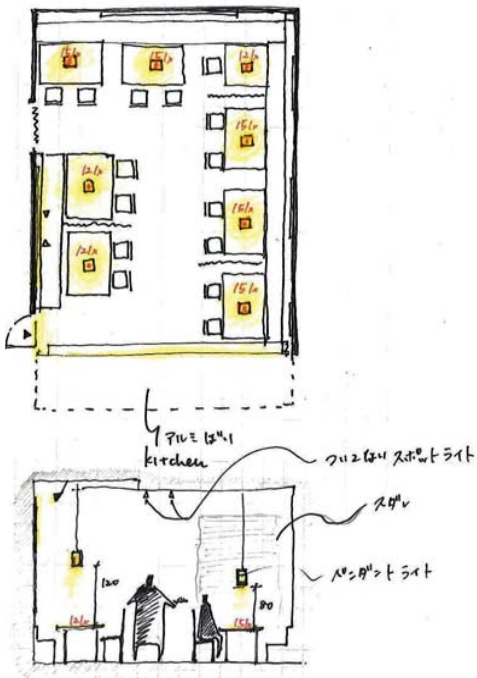 15lx
15lx
12lx
15lx
12lx
15lx
12lx
15lx
アルミばり
kitchen
スポットライト
スダレ
ペンダントライト
120
80
12lx
15lx